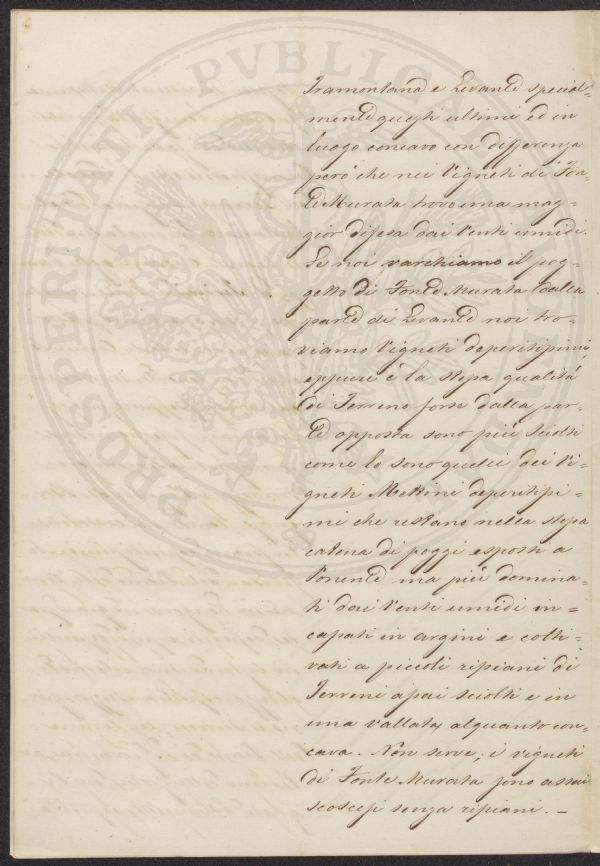 PROSPERITATI PVBLICAE
Tramontana e Levante special=
mente questi ultimi ed in
luogo concavo con differenza
però che nei Vigneti di Fon=
te Murata trovo una mag=
gior difesa dai Venti umidi.
Se noi varchiamo il pog=
getto di Fonte Murata dalla
parte di Levante noi tro=
viamo Vigneti deperitissimi,
eppure è la stessa qualità
di Terreno forse dalla par=
te opposta sono più sciolti
come lo sono quelli dei Vi=
gneti Mettini deperitissi=
mi che restano nella stessa
catena di poggi esposti a
Ponente ma più domina=
ti dai Venti umidi in=
cassati in argini e colti=
vati a piccoli ripiani di
Terreni assai sciolti e in
una vallata, alquanto con=
cava. Non serve; i vigneti
di Fonte Murata sono assai
scoscesi senza ripiani. —